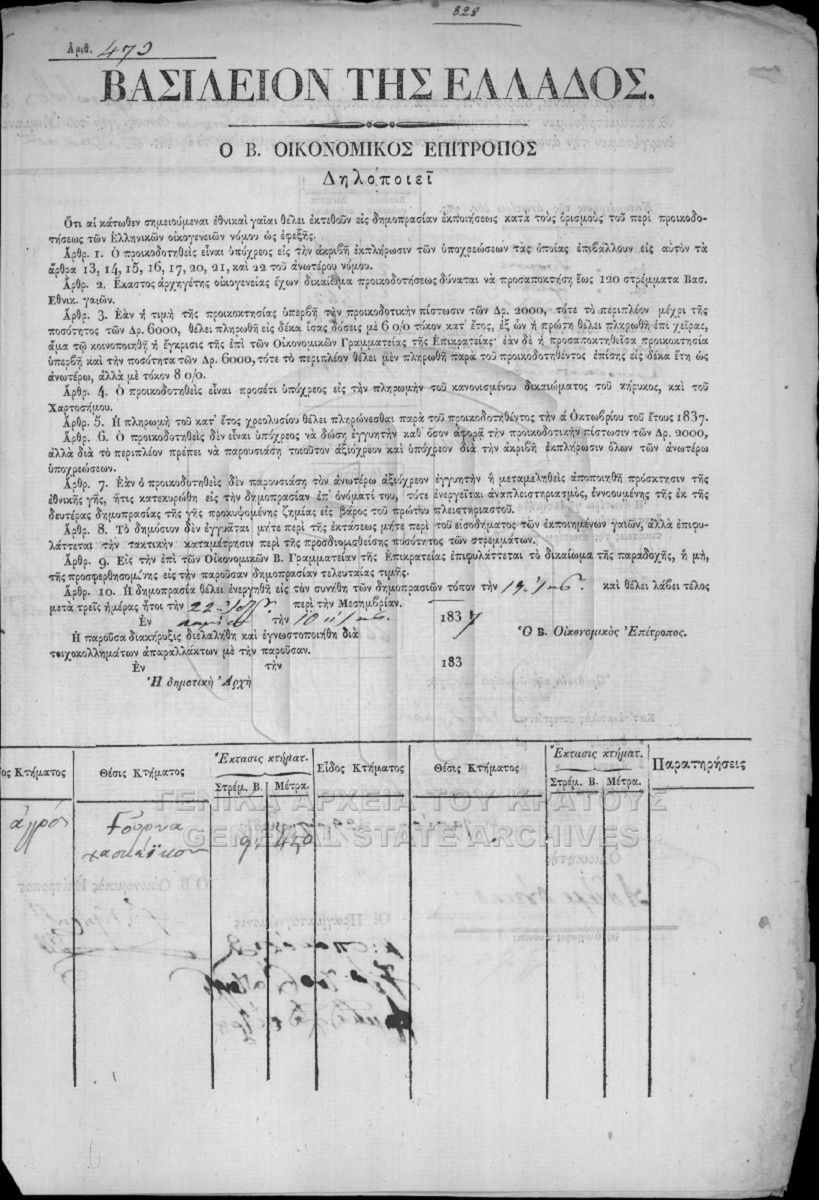 828
Ἀριθ. 473
ΒΑΣΙΛΕΙΟΝ ΤΗΣ ΕΛΛΑΔΟΣ.
Ο Β. ΟΙΚΟΝΟΜΙΚΟΣ ΕΠΙΤΡΟΠΟΣ
Δηλοποιεῖ
Ὅτι αἱ κάτωθεν σημειούμεναι ἐθνικαὶ γαῖαι θέλει ἐκτεθοῦν εἰς δημοπρασίαν ἐκποιήσεως κατὰ τοὺς ὁρισμοὺς τοῦ περὶ προικοδο-
τήσεως τῶν Ἑλληνικῶν οἰκογενειῶν νόμου ὡς ἐφεξῆς.
Ἄρθρ. 1. Ὁ προικοδοτηθεὶς εἶναι ὑπόχρεος εἰς τὴν ἀκριβῆ ἐκπλήρωσιν τῶν ὑποχρεώσεων τὰς ὁποίας ἐπιβάλλουν εἰς αὐτὸν τὰ
ἄρθρα 13, 14, 15, 16, 17, 20, 21, καὶ 22 τοῦ ἀνωτέρου νόμου.
Ἄρθρ. 2. Ἕκαστος ἀρχηγέτης οἰκογενείας ἔχων δικαίωμα προικοδοτήσεως δύναται νὰ προσαποκτήσῃ ἕως 120 στρέμματα Βασ.
Ἐθνικ. γαιῶν.
Ἄρθρ. 3. Ἐὰν ἡ τιμὴ τῆς προικοκτησίας ὑπερβῇ τὴν προικοδοτικὴν πίστωσιν τῶν Δρ. 2000, τότε τὸ περιπλέον μέχρι τῆς
ποσότητος τῶν Δρ. 6000, θέλει πληρωθῆ εἰς δέκα ἴσας δόσεις μὲ 6 0/0 τόκον κατ' ἔτος, ἐξ ὧν ἡ πρώτη θέλει πληρωθῆ ἐπὶ χεῖρας,
ἅμα τῷ κοινοποιηθῇ ἡ ἔγκρισις τῆς ἐπὶ τῶν Οἰκονομικῶν Γραμματείας τῆς Ἐπικρατείας· ἐὰν δὲ ἡ προσαποκτηθεῖσα προικοκτησία
ὑπερβῇ καὶ τὴν ποσότητα τῶν Δρ. 6000, τότε τὸ περιπλέον θέλει μὲν πληρωθῆ παρὰ τοῦ προικοδοτηθέντος ἐπίσης εἰς δέκα ἔτη ὡς
ἀνωτέρω, ἀλλὰ μὲ τόκον 8 0/0.
Ἄρθρ. 4. Ὁ προικοδοτηθεὶς εἶναι προσέτι ὑπόχρεος εἰς τὴν πληρωμὴν τοῦ κανονισμένου δικαιώματος τοῦ κήρυκος, καὶ τοῦ
Χαρτοσήμου.
Ἄρθρ. 5. Ἡ πληρωμὴ τοῦ κατ' ἔτος χρεολυσίου θέλει πληρώνεσθαι παρὰ τοῦ προικοδοτηθέντος τὴν ά Ὀκτωβρίου τοῦ ἔτους 1837.
Ἄρθρ. 6. Ὁ προικοδοτηθεὶς δὲν εἶναι ὑπόχρεος νὰ δώσῃ ἐγγυητὴν καθ' ὅσον ἀφορᾷ τὴν προικοδοτικὴν πίστωσιν τῶν Δρ. 2000,
ἀλλὰ διὰ τὸ περιπλέον πρέπει νὰ παρουσιάσῃ τοιοῦτον ἀξιόχρεον καὶ ὑπόχρεον διὰ τὴν ἀκριβῆ ἐκπλήρωσιν ὅλων τῶν ἀνωτέρω
ὑποχρεώσεων.
Ἄρθρ. 7. Ἐὰν ὁ προικοδοτηθεὶς δὲν παρουσιάσῃ τὸν ἀνωτέρω ἀξιόχρεον ἐγγυητὴν ἢ μεταμεληθεὶς ἀποποιηθῇ πρόσκτησιν τῆς
ἐθνικῆς γῆς, ἥτις κατεκυρώθη εἰς τὴν δημοπρασίαν ἐπ' ὀνόματί του, τότε ἐνεργεῖται ἀναπλειστηριασμὸς, ἐννοουμένης τῆς ἐκ τῆς
δευτέρας δημοπρασίας τῆς γῆς προκυψομένης ζημίας εἰς βάρος τοῦ πρώτου πλειστηριαστοῦ.
Ἄρθρ. 8. Τὸ δημόσιον δὲν ἐγγυᾶται μήτε περὶ τῆς ἐκτάσεως μήτε περὶ τοῦ εἰσοδήματος τῶν ἐκποιημένων γαιῶν, ἀλλὰ ἐπιφυ-
λάττεται τὴν τακτικὴν καταμέτρησιν περὶ τῆς προσδιορισθείσης ποσότητος τῶν στρεμμάτων.
Ἄρθρ. 9. Εἰς τὴν ἐπὶ τῶν Οἰκονομικῶν Β. Γραμματείαν τῆς Ἐπικρατείας ἐπιφυλάττεται τὸ δικαίωμα τῆς παραδοχῆς, ἢ μὴ,
τῆς προσφερθησομένης εἰς τὴν παροῦσαν δημοπρασίαν τελευταίας τιμῆς.
Ἄρθρ. 10. Ἡ δημοπρασία θέλει ἐνεργηθῆ εἰς τὸν συνήθη τῶν δημοπρασιῶν τόπον τὴν 19 καὶ θέλει λάβει τέλος
μετὰ τρεῖς ἡμέρας ἤτοι τὴν 22 περὶ τὴν Μεσημβρίαν.
Ἐν τὴν 10 1837
Ὁ Β. Οἰκονομικὸς Ἐπίτροπος.
Ἡ παροῦσα διακήρυξις διελαλήθη καὶ ἐγνωστοποιήθη διὰ
τοιχοκολλημάτων ἀπαραλλάκτων μὲ τὴν παροῦσαν.
Ἐν τὴν 183
Ἡ δημοτικὴ Ἀρχὴ
δος Κτήματος Θέσις Κτήματος Ἔκτασις κτήματ. Εἶδος Κτήματος Θέσις Κτήματος Ἔκτασις κτήματ. Παρατηρήσεις
Στρέμ. Β. Μέτρα. Στρέμ. Β. Μέτρα.
ἀγρός Γούρνα 9 450
ΓΕΝΙΚΑ ΑΡΧΕΙΑ ΤΟΥ ΚΡΑΤΟΥΣ
GENERAL STATE ARCHIVES